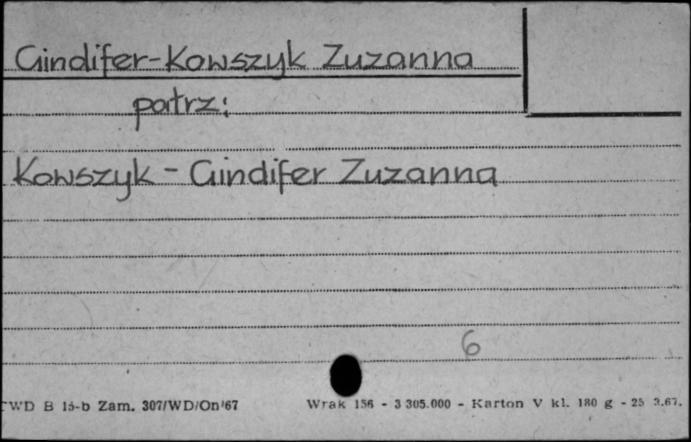 Gindifer-Kowszyk Zuzanna
patrz:
Kowszyk - Gindifer Zuzanna
6
TWD B 15-b Zam. 307/WD/On/67 Wrak 156 - 3 305.000 - Karton V kl. 180 g - 25 3.67.